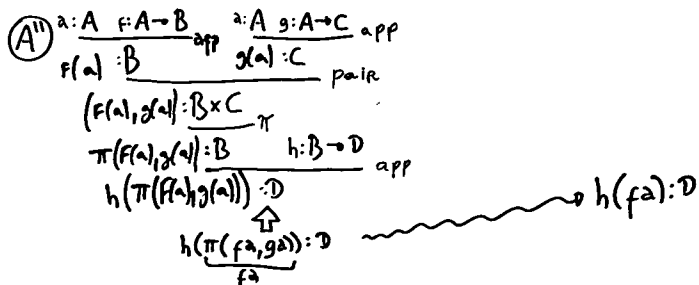 A'' a:A f:A→B app a:A g:A→C app
f(a):B g(a):C pair
(f(a),g(a)):B×C π
π(f(a),g(a)):B h:B→D app
h(π(f(a),g(a))):D
h(π(fa,ga)):D h(fa):D
fa